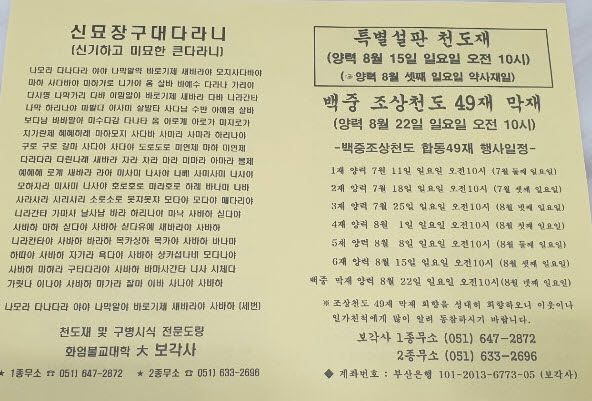 신묘장구대다라니
(신기하고 미묘한 큰다라니)
나모라 다나다라 야야 나막알약 바로기제 새바라야 모지사다바야
마하 사다바야 마하가로 니가야 옴 살바 바예수 다라나 가라야
다사명 나막가리 다바 이맘알야 바로기제 새바라 다바 니라간타
나막 하리나야 마발다 이사미 살발타 사다남 수반 아예염 살바
보다남 바바말아 미수다감 다냐타 옴 아로계 아로가 마지로가
지가란제 혜혜하례 마하모지 사다바 사마라 사마라 하리나야
구로 구로 갈마 사다야 사다야 도로도로 미연제 마하 미연제
다라다라 다린나례 새바라 자라 자라 마라 미마라 아마라 몰제
예혜혜 로계 새바라 라아 미사미 나사야 나베 사미사미 나사야
모하자라 미사미 나사야 호로호로 마라호로 하례 바나마 나바
사라사라 시리시리 소로소로 못쟈못쟈 모다야 모다야 매다리야
니라간타 가마사 날사남 바라 하리나야 마낙 사바하 싣다야
사바하 마하 싣다야 사바하 싣다유예 새바라야 사바하
니라간타야 사바하 바라하 목카싱하 목카야 사바하 바나마
하따야 사바하 자가라 욕다야 사바하 상카섭나네 모다나야
사바하 마하라 구타다라야 사바하 바마사간타 니사 시체다
가릿나 이나야 사바하 마가라 잘마 이바 사나야 사바하
나모라 다나다라 야야 나막알야 바로기제 새바라야 사바하 (세번)
천도재 및 구병시식 전문도량
화엄불교대학 大 보각사
★ 1종무소 ☎ 051) 647-2872 ★ 2종무소 ☎ 051) 633-2696
특별설판 천도재
(양력 8월 15일 일요일 오전 10시)
(☞양력 8월 셋째 일요일 약사재일)
백중 조상천도 49재 막재
(양력 8월 22일 일요일 오전 10시)
-백중조상천도 합동49재 행사일정-
1재 양력 7월 11일 일요일 오전10시 (7월 둘째 일요일)
2재 양력 7월 18일 일요일 오전10시 (7월 셋째 일요일)
3재 양력 7월 25일 일요일 오전10시 (8월 넷째 일요일)
4재 양력 8월 1일 일요일 오전10시 (8월 첫째 일요일)
5재 양력 8월 8일 일요일 오전10시 (8월 둘째 일요일)
6재 양력 8월 15일 일요일 오전10시 (8월 셋째 일요일)
백중 막재 양력 8월 22일 일요일 오전10시 (8월 넷째 일요일)
※ 조상천도 49재 막재 회향을 성대히 회향하오니 이웃이나
일가친척에게 많이 알려 동참하시기 바랍니다.
보각사 1종무소 (051) 647-2872
2종무소 (051) 633-2696
◆ 계좌번호 : 부산은행 101-2013-6773-05 (보각사)